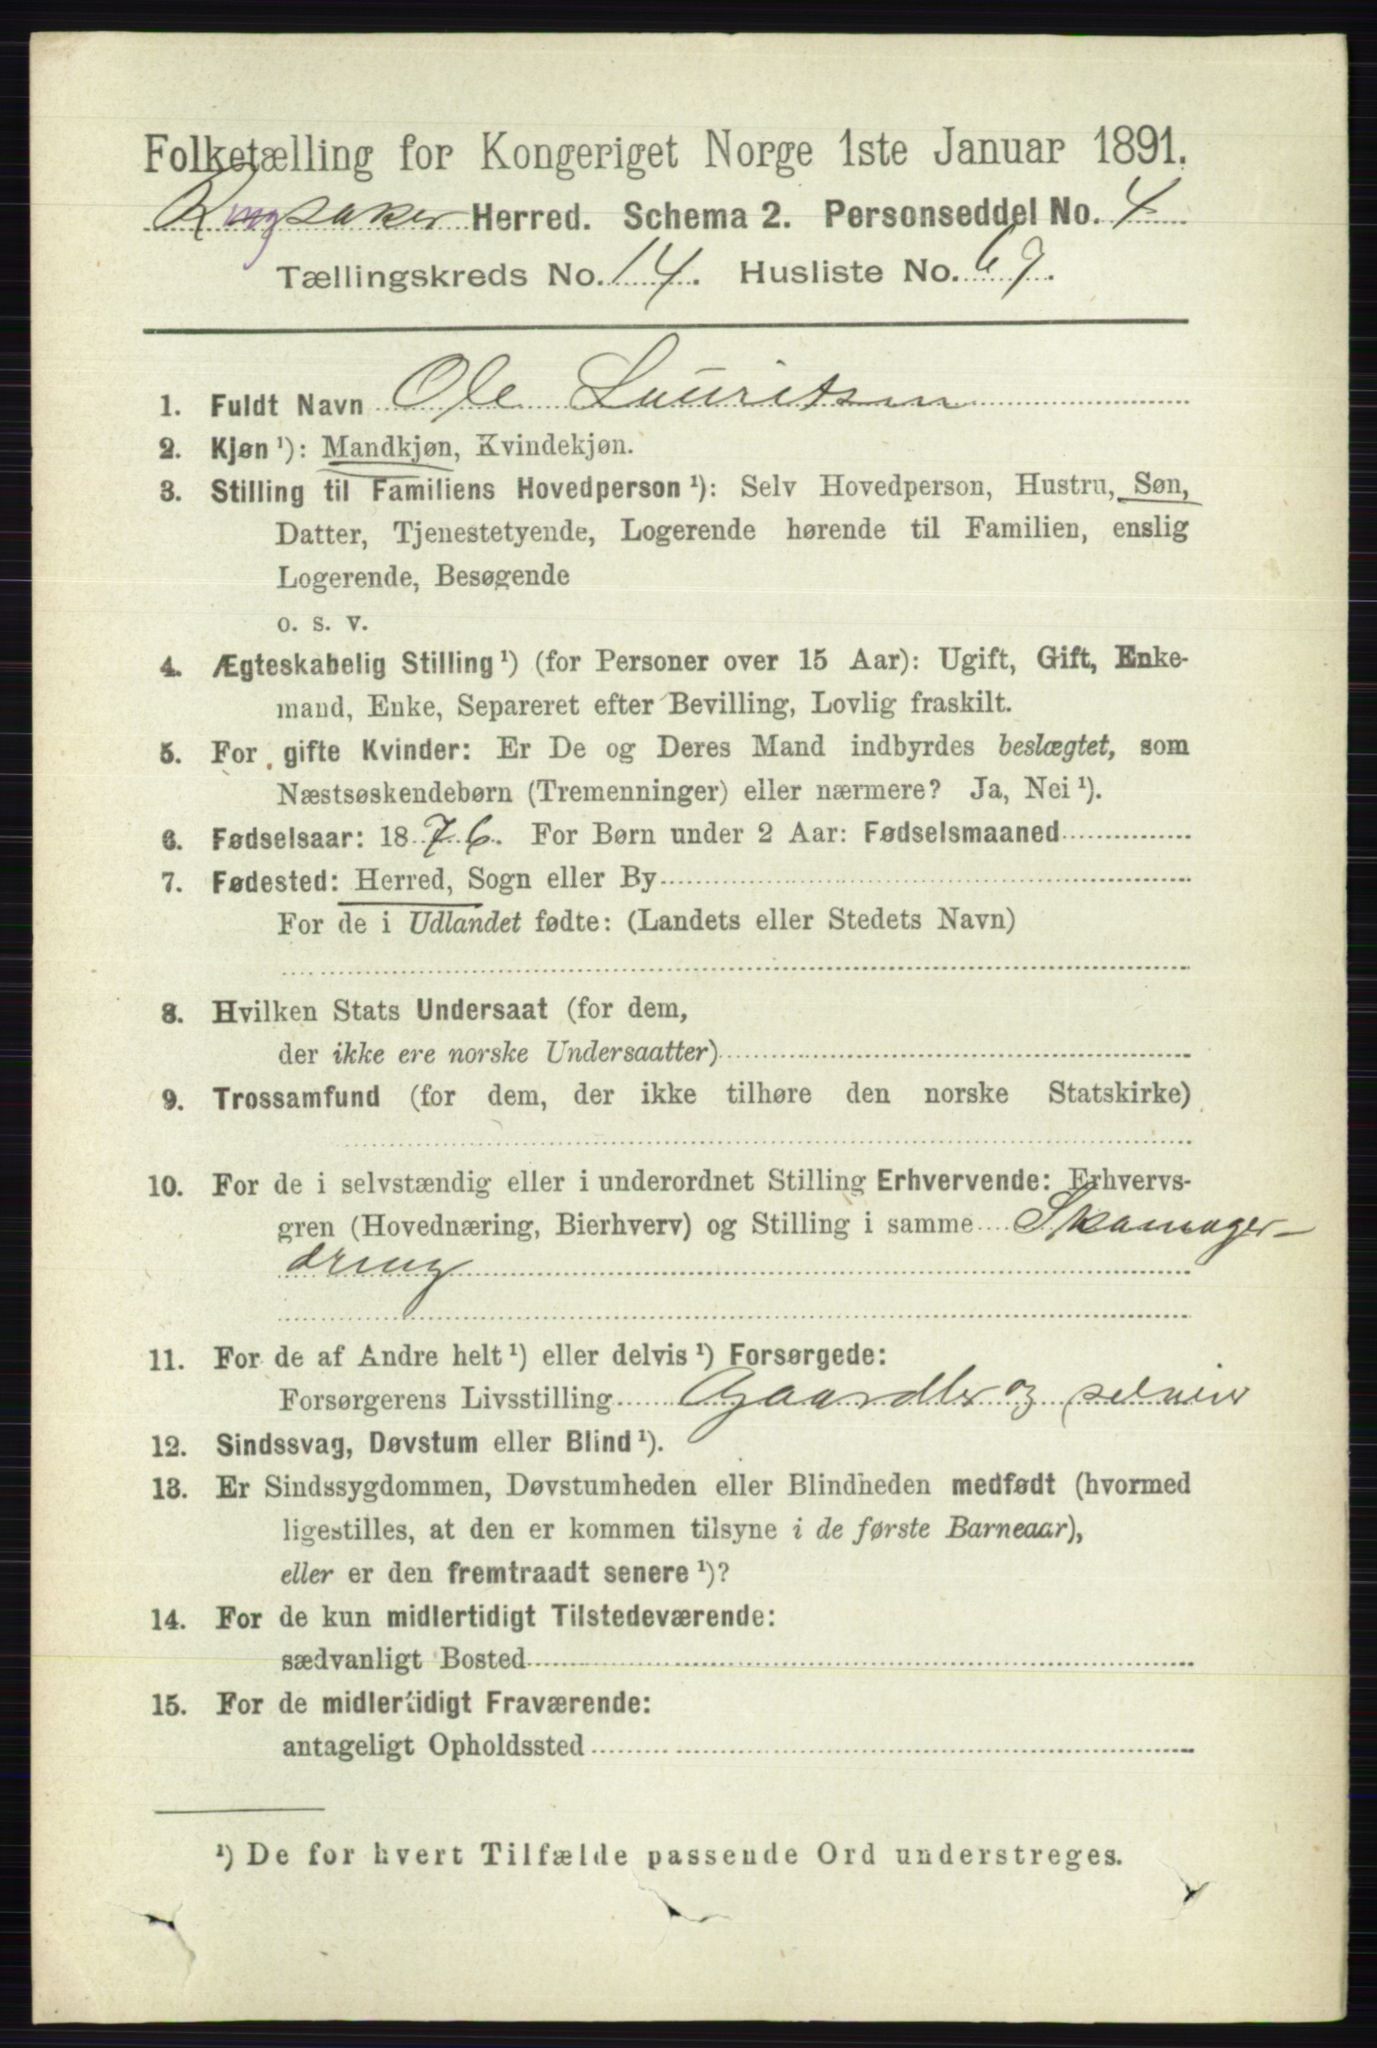 Folketælling for Kongeriget Norge 1ste Januar 1891.
Ringsaker Herred. Schema 2. Personseddel No. 4
Tællingskreds No. 14. Husliste No. 67.
1. Fuldt Navn Ole Lauritsen
2. Kjøn ¹): Mandkjøn, Kvindekjøn.
3. Stilling til Familiens Hovedperson ¹): Selv Hovedperson, Hustru, Søn,
Datter, Tjenestetyende, Logerende hørende til Familien, enslig
Logerende, Besøgende
o. s. v.
4. Ægteskabelig Stilling ¹) (for Personer over 15 Aar): Ugift, Gift, Enke-
mand, Enke, Separeret efter Bevilling, Lovlig fraskilt.
5. For gifte Kvinder: Er De og Deres Mand indbyrdes beslægtet, som
Næstsøskendebørn (Tremenninger) eller nærmere? Ja, Nei ¹).
6. Fødselsaar: 1876. For Børn under 2 Aar: Fødselsmaaned
7. Fødested: Herred, Sogn eller By
For de i Udlandet fødte: (Landets eller Stedets Navn)
8. Hvilken Stats Undersaat (for dem,
der ikke ere norske Undersaatter)
9. Trossamfund (for dem, der ikke tilhøre den norske Statskirke)
10. For de i selvstændig eller i underordnet Stilling Erhvervende: Erhvervs-
gren (Hovednæring, Bierhverv) og Stilling i samme Skomager-
dreng
11. For de af Andre helt ¹) eller delvis ¹) Forsørgede:
Forsørgerens Livsstilling og
12. Sindssvag, Døvstum eller Blind ¹).
13. Er Sindssygdommen, Døvstumheden eller Blindheden medfødt (hvormed
ligestilles, at den er kommen tilsyne i de første Barneaar),
eller er den fremtraadt senere ¹)?
14. For de kun midlertidigt Tilstedeværende:
sædvanligt Bosted
15. For de midlertidigt Fraværende:
antageligt Opholdssted
¹) De for hvert Tilfælde passende Ord understreges.